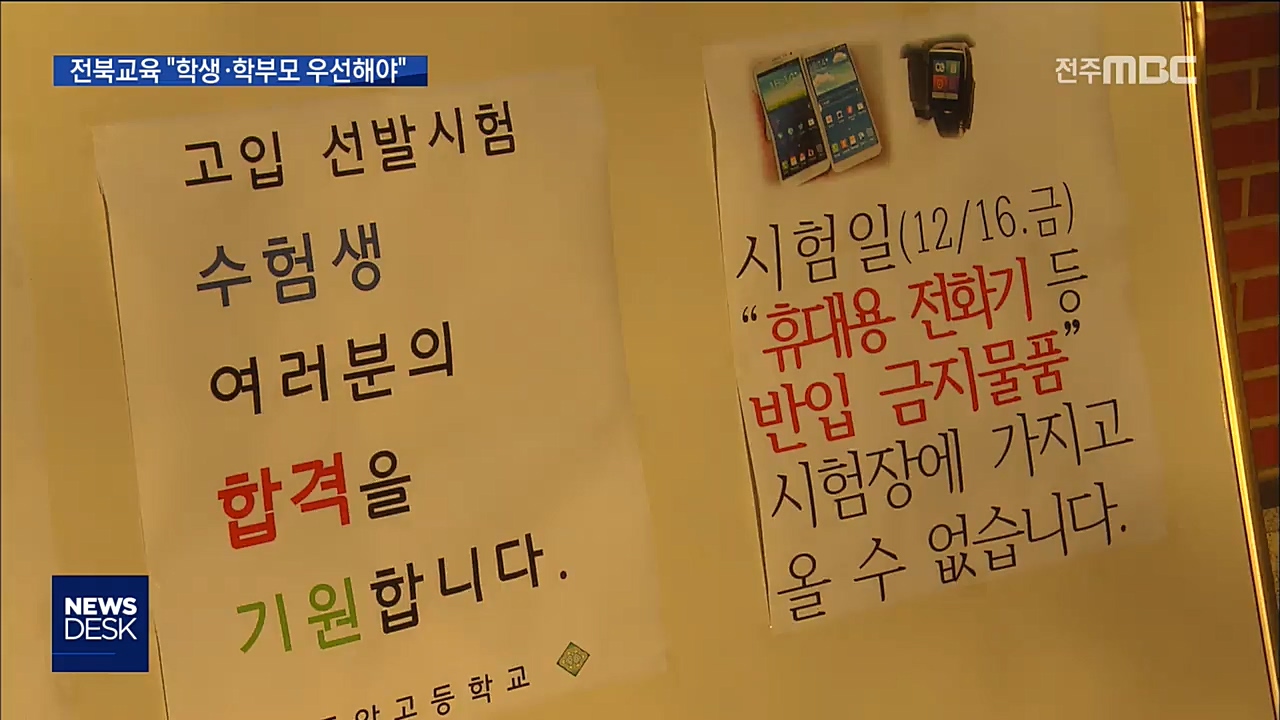 전북교육 "학생·학부모 우선해야"
전주MBC
고입 선발시험
수험생
여러분의
합격을
기원합니다.
고등학교
시험일(12/16.금)
“휴대용 전화기 등
반입 금지물품”
시험장에 가지고
올 수 없습니다.
NEWS
DESK